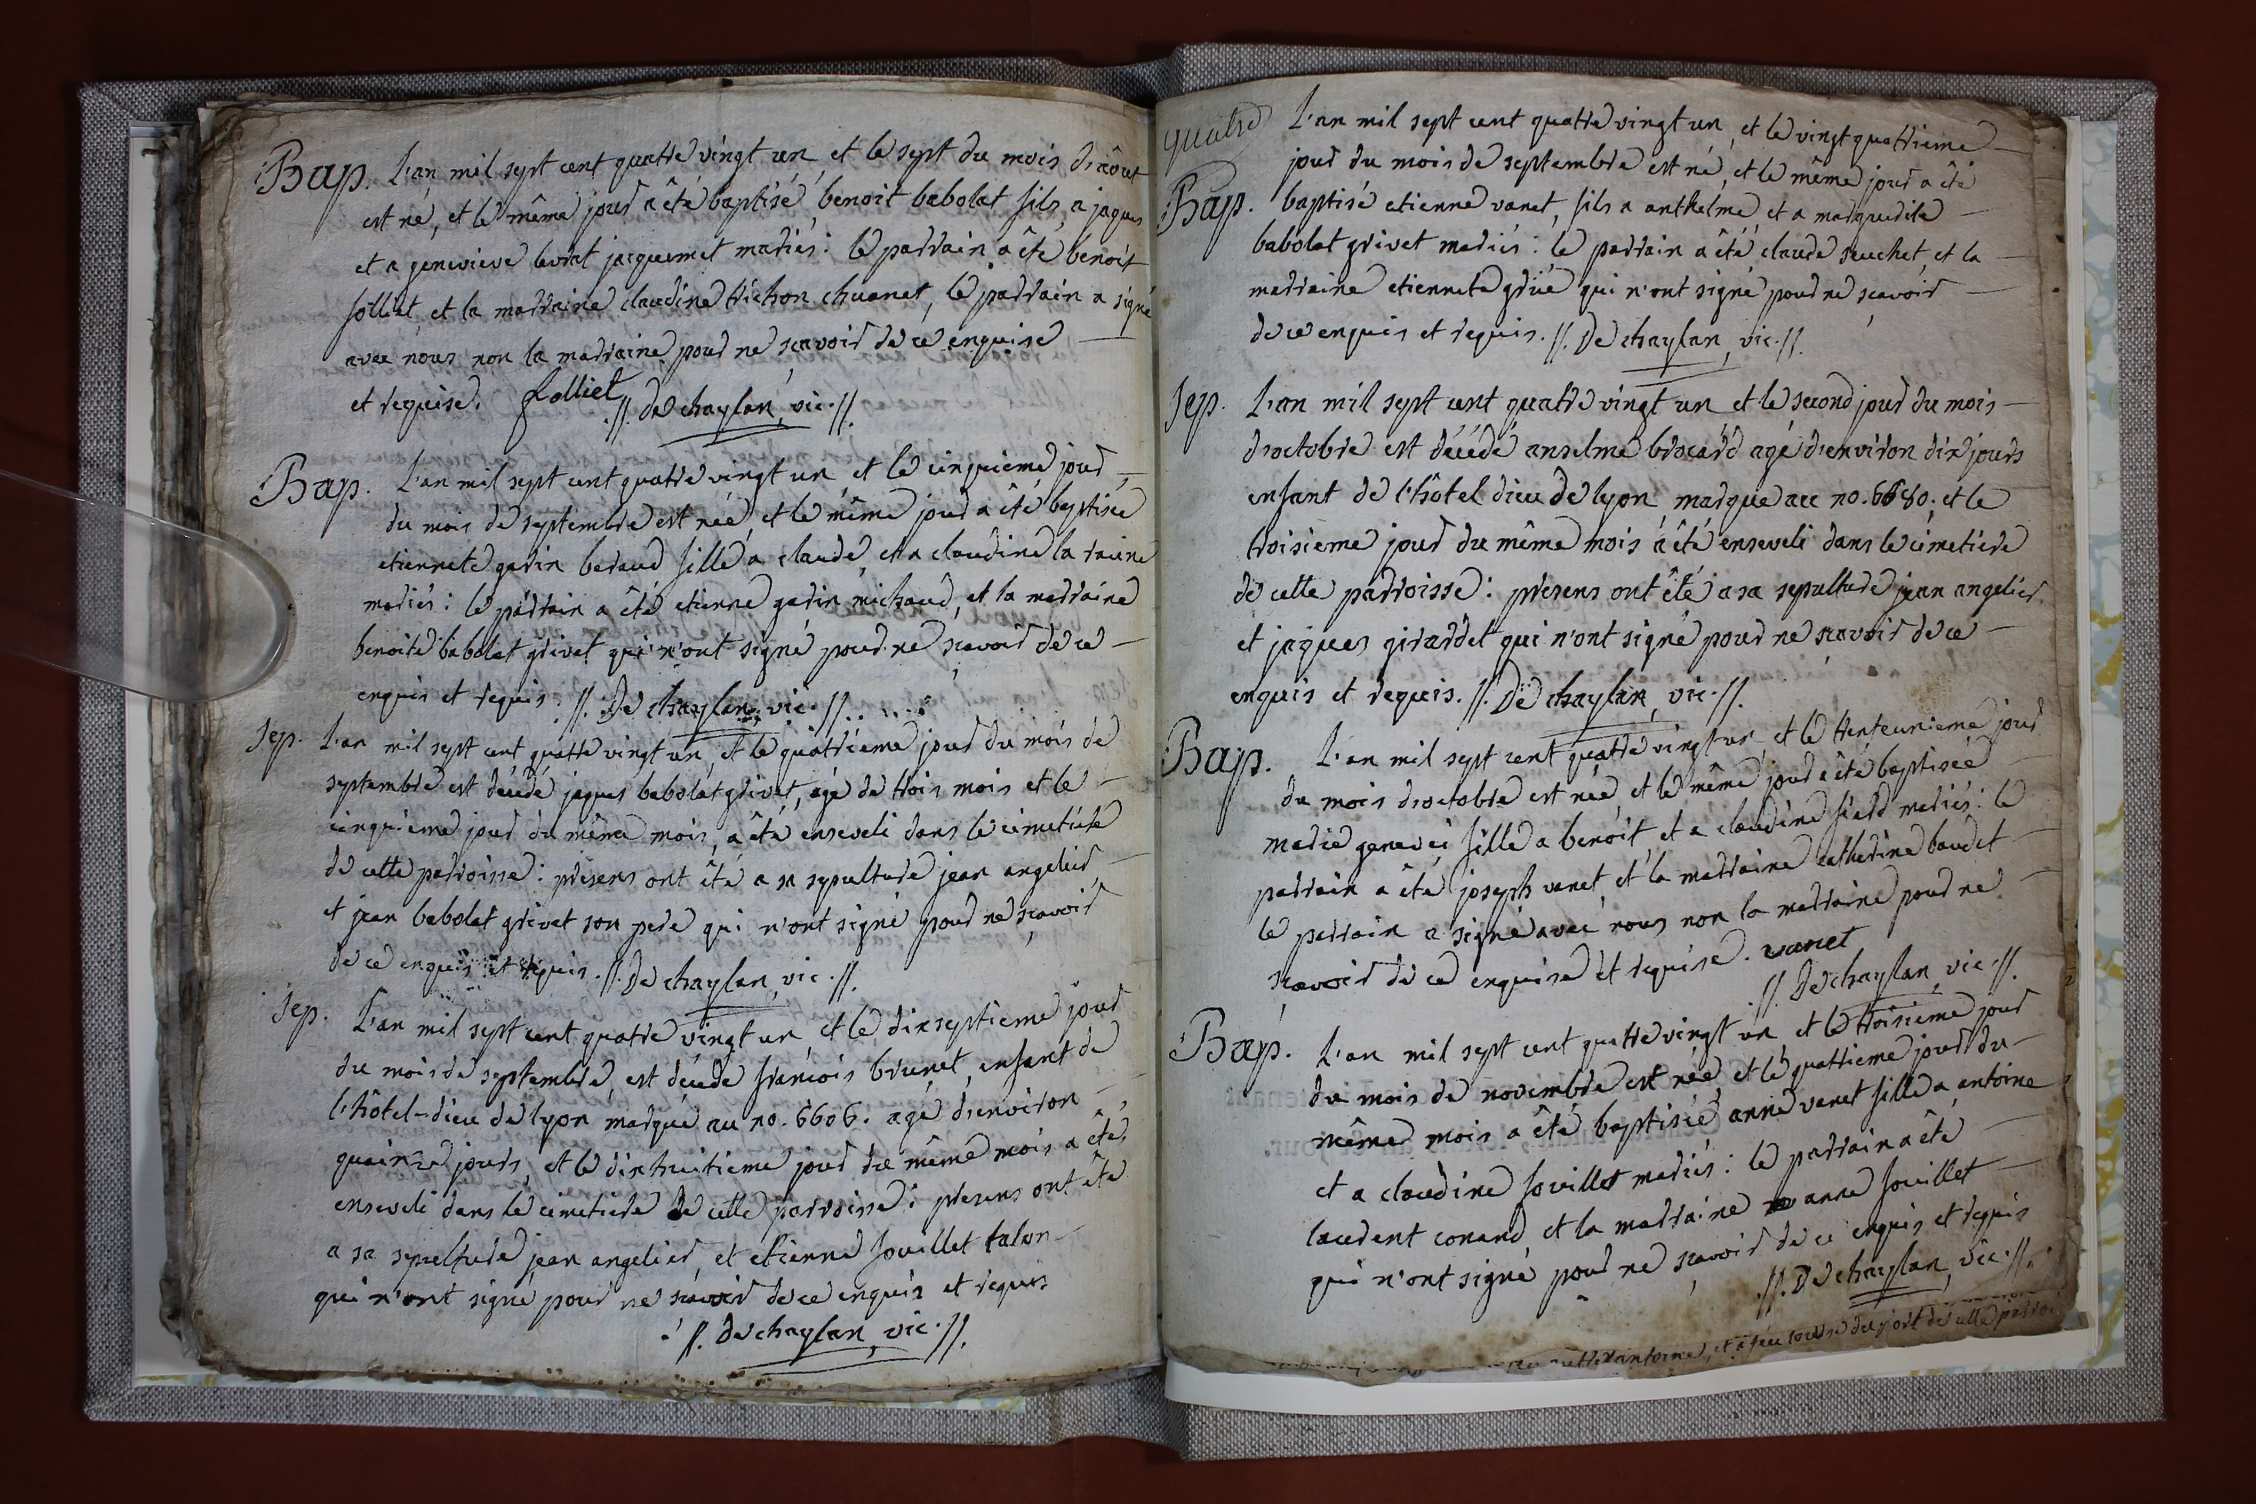 Bap. L'an mil sept cent quatre vingt un, et le sept du mois d'aôut
est né, et le même jour a été baptisé, benoit babolat fils a jaques
et a genevieve levrat jacquemet mariés: le parrain a êté benoit
folliet, et la marraine claudine trichon chuanet, le parrain a signé
avec nous non la marraine pour ne scavoir de ce enquise
et requise. folliet .//. De chaylan, vic. //.
Bap. L'an mil sept cent quatre vingt un, et le cinquieme jour
du mois de septembre est née et le même jour a êté baptisée
etiennete garin beraud fille a claude, et a claudine la racine
mariés: le parrain a êté etienne garin michaud, et la marraine
benoite babolat grivet qui n'ont signé pour ne scavoir de ce
enquis et requis .//. De chaylan, vic. //.
Sep. L'an mil sept cent quatre vingt un, et le quatrieme jour du mois de
septembre est décédé jaques babolat grivet, agé de trois mois et le
cinquieme jour du même mois, a êté enseveli dans le cimetiere
de cette parroisse: presens ont êté a sa sepulture jean angelier,
et jean babolat grivet son pere qui n'ont signé pour ne scavoir
de ce enquis et requis .//. De chaylan, vic. //.
Sep. L'an mil sept cent quatre vingt un, et le dixseptieme jour
du mois de septembre, est décédé francois brunet, enfant de
l'hôtel-dieu de lyon marqué au no. 6606. agé d'environ
quainze jours, et le dixhuitieme jour du même mois a êté
enseveli dans le cimetiere de cette parroisse: presens ont êté
a sa sepulture jean angelier, et etienne fouillet talon
qui n'ont signé pour ne scavoir de ce enquis et requis
.//. De chaylan, vic. //.
quatre L'an mil sept cent quatre vingt un, et le vingt quatrieme
jour du mois de septembre est né, et le même jour a êté
Bap. baptisé etienne vanet, fils a anthelme et a marguerite
babolat grivet mariés: le parrain a êté claude seuchet, et la
marraine etiennete grué qui n'ont signé pour ne scavoir
de ce enquis et requis. //. De chaylan, vic. //.
Sep. L'an mil sept cent quatre vingt un et le second jour du mois
d'octobre est décédé anselme brocard agé d'environ dix jours
enfant de l'hôtel dieu de lyon marque au no. 6680. et le
troisieme jour du même mois a êté enseveli dans le cimetiere
de cette parroisse: presens ont êté a sa sepulture jean angelier
et jaques girardet qui n'ont signé pour ne scavoir de ce
enquis et requis. //. De chaylan, vic. //.
Bap. L'an mil sept cent quatre vingt un, et le trenteunieme jour
du mois d'octobre est née, et le même jour a êté baptisée
marie genevei fille a benoit, et a claudine siard mariés: le
parrain a êté joseph vanet, et la marraine catherine baudet
le parrain a signé avec nous non la marraine pour ne
scavoir de ce enquise et requise. vanet
.//. De chaylan, vic. //.
Bap. L'an mil sept cent quatre vingt un, et le troisieme jour
du mois de novembre est née, et le quattrieme jour du
même mois a êté baptisée anne vanet fille a antoine
et a claudine fouillet mariés: le parrain a êté
laurent conand, et la marraine anne fouillet
qui n'ont signé pour ne scavoir de ce enquis et requis
.//. De chaylan, vic. //.
antoine, et a feu